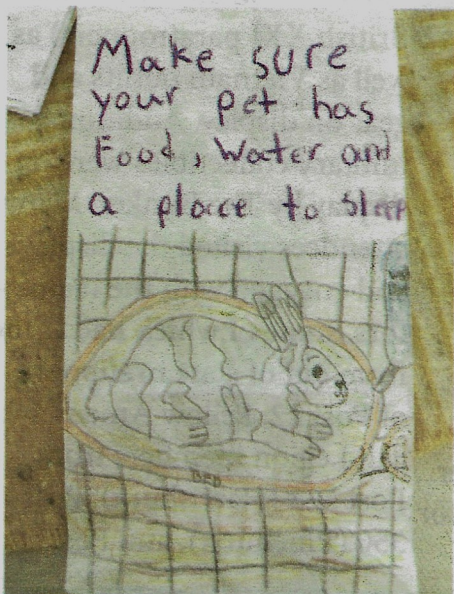 Make sure
your pet has
Food, Water and
a place to sleep
BED